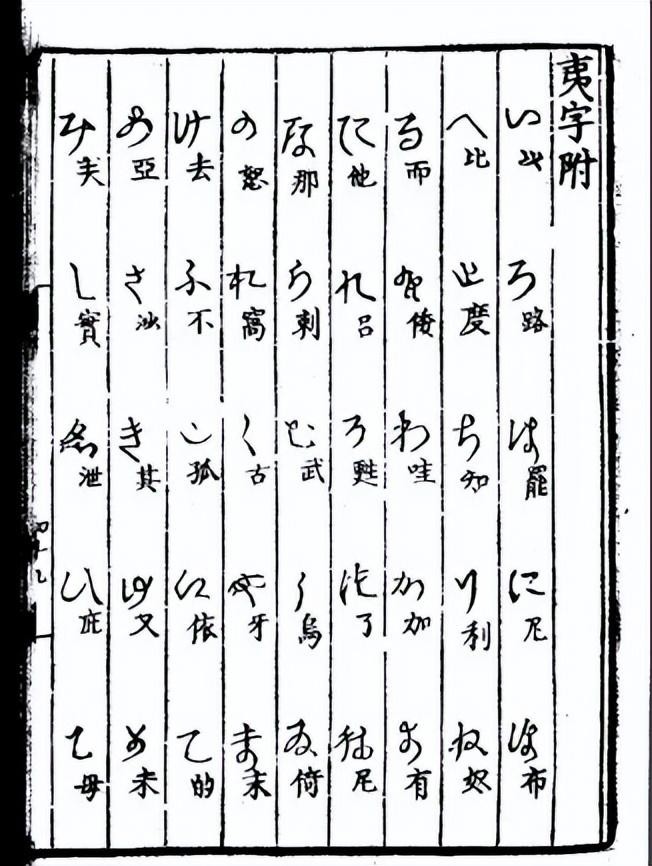 夷字附
い ろ路 は罷 に尼 ほ布
へ比 と度 ち知 り利 ぬ奴
る而 を倭 わ哇 か加 よ有
た他 れ呂 そ甦 つ了 ね尼
な那 ら剌 む武 う烏 ゐ倚
の お窩 く古 や牙 ま末
け去 ふ不 こ孤 え依 て的
あ亞 さ沙 き其 ゆ又 め未
み し實 ゑ泄 ひ庇 も母